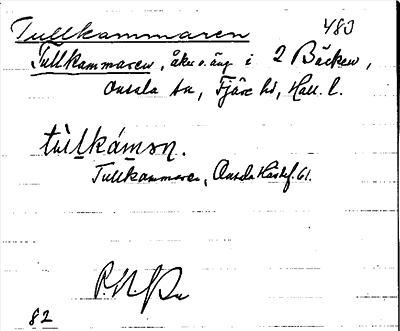 Tullkammaren 483
Tullkammaren, åker o. äng i 2 Bäcken,
Onsala sn, Fjäre hd, Hall. l.
tùl̠kám̠ɘn.
Tullkammaren, Onsala Häradsk. 61.
82